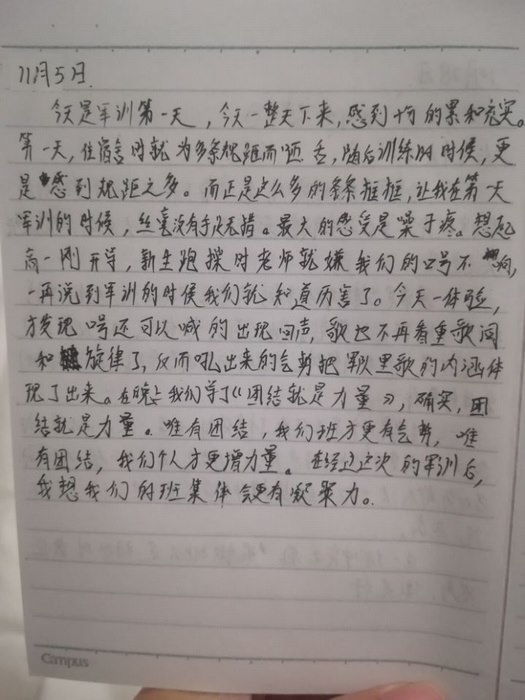 11月5日
今天是军训第一天，今天一整天下来，感到十的累和充实。
第一天，住宿舍时就为多条规距而咂舌，随后训练时候，更
是感到规距之多。而正是这么多的条条框框，让我在第一天
军训的时候，丝毫没有手足无措。最大的感受是嗓子疼。想起
高一刚开学，新生跑操时老师就嫌我们的口号不响，
一再说到军训的时候我们就知道厉害了。今天一体验，
才发现口号还可以喊的出现回声，歌也不再看重歌词
和旋律了，反而吼出来的气势把军队里歌的内涵体
现了出来。在晚上我们学了《团结就是力量》，确实，团
结就是力量。唯有团结，我们班才更有气势，唯
有团结，我们个人才更增力量。在经过这次的军训后，
我想我们的班集体会更有凝聚力。
Campus